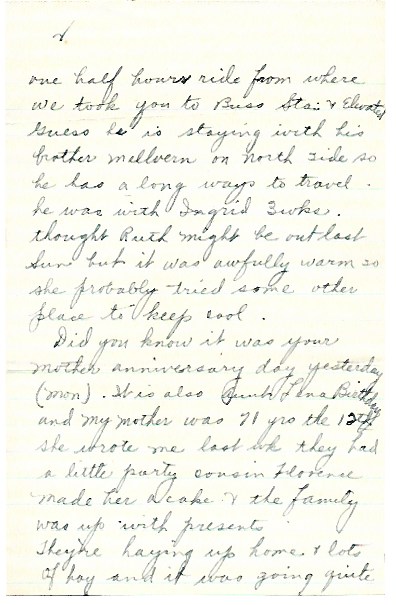 one half hours ride from where
we took you to Buss Sta. & Elevated
Guess he is staying with his
brother Mellvern on North Side so
he has a long ways to travel.
he was with Ingrid 3 wks.
thought Ruth might be out last
Sun but it was awfully warm so
she probably tried some other
place to keep cool.
Did you know it was your
mother anniversary day yesterday
(Mon). It is also Aunt Lena Birthday
and My Mother was 71 yrs the 12th
she wrote me last wk they had
a little party cousin Florence
made her a cake & the family
was up with presents
They're haying up home & lots
of hay and it was going quite